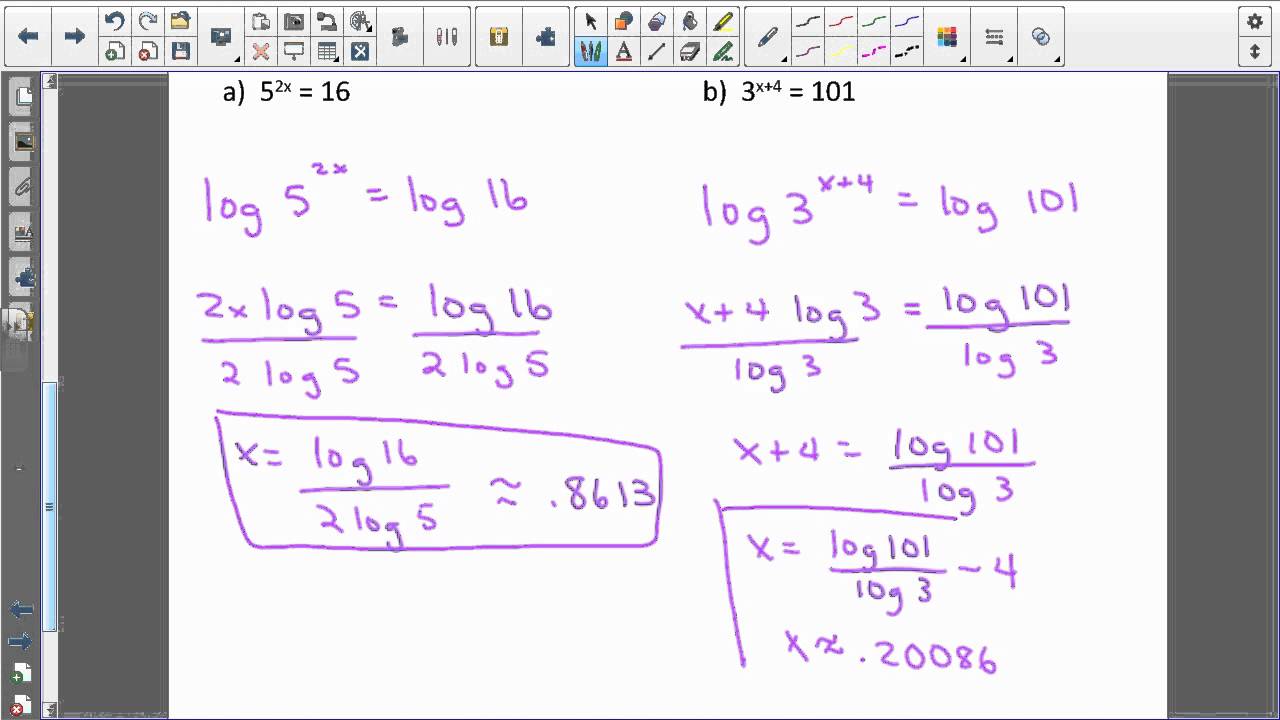 a) 5²ˣ = 16
log 5²ˣ = log 16
2x log 5 = log 16
2 log 5 2 log 5
x = log 16
2 log 5
≈ .8613
b) 3ˣ⁺⁴ = 101
log 3ˣ⁺⁴ = log 101
x+4 log 3 = log 101
log 3 log 3
x+4 = log 101
log 3
x = log 101
log 3
- 4
x ≈ .20086